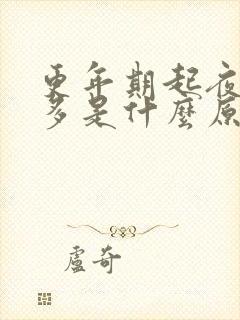 更年期起夜
多是什麼原
盧奇